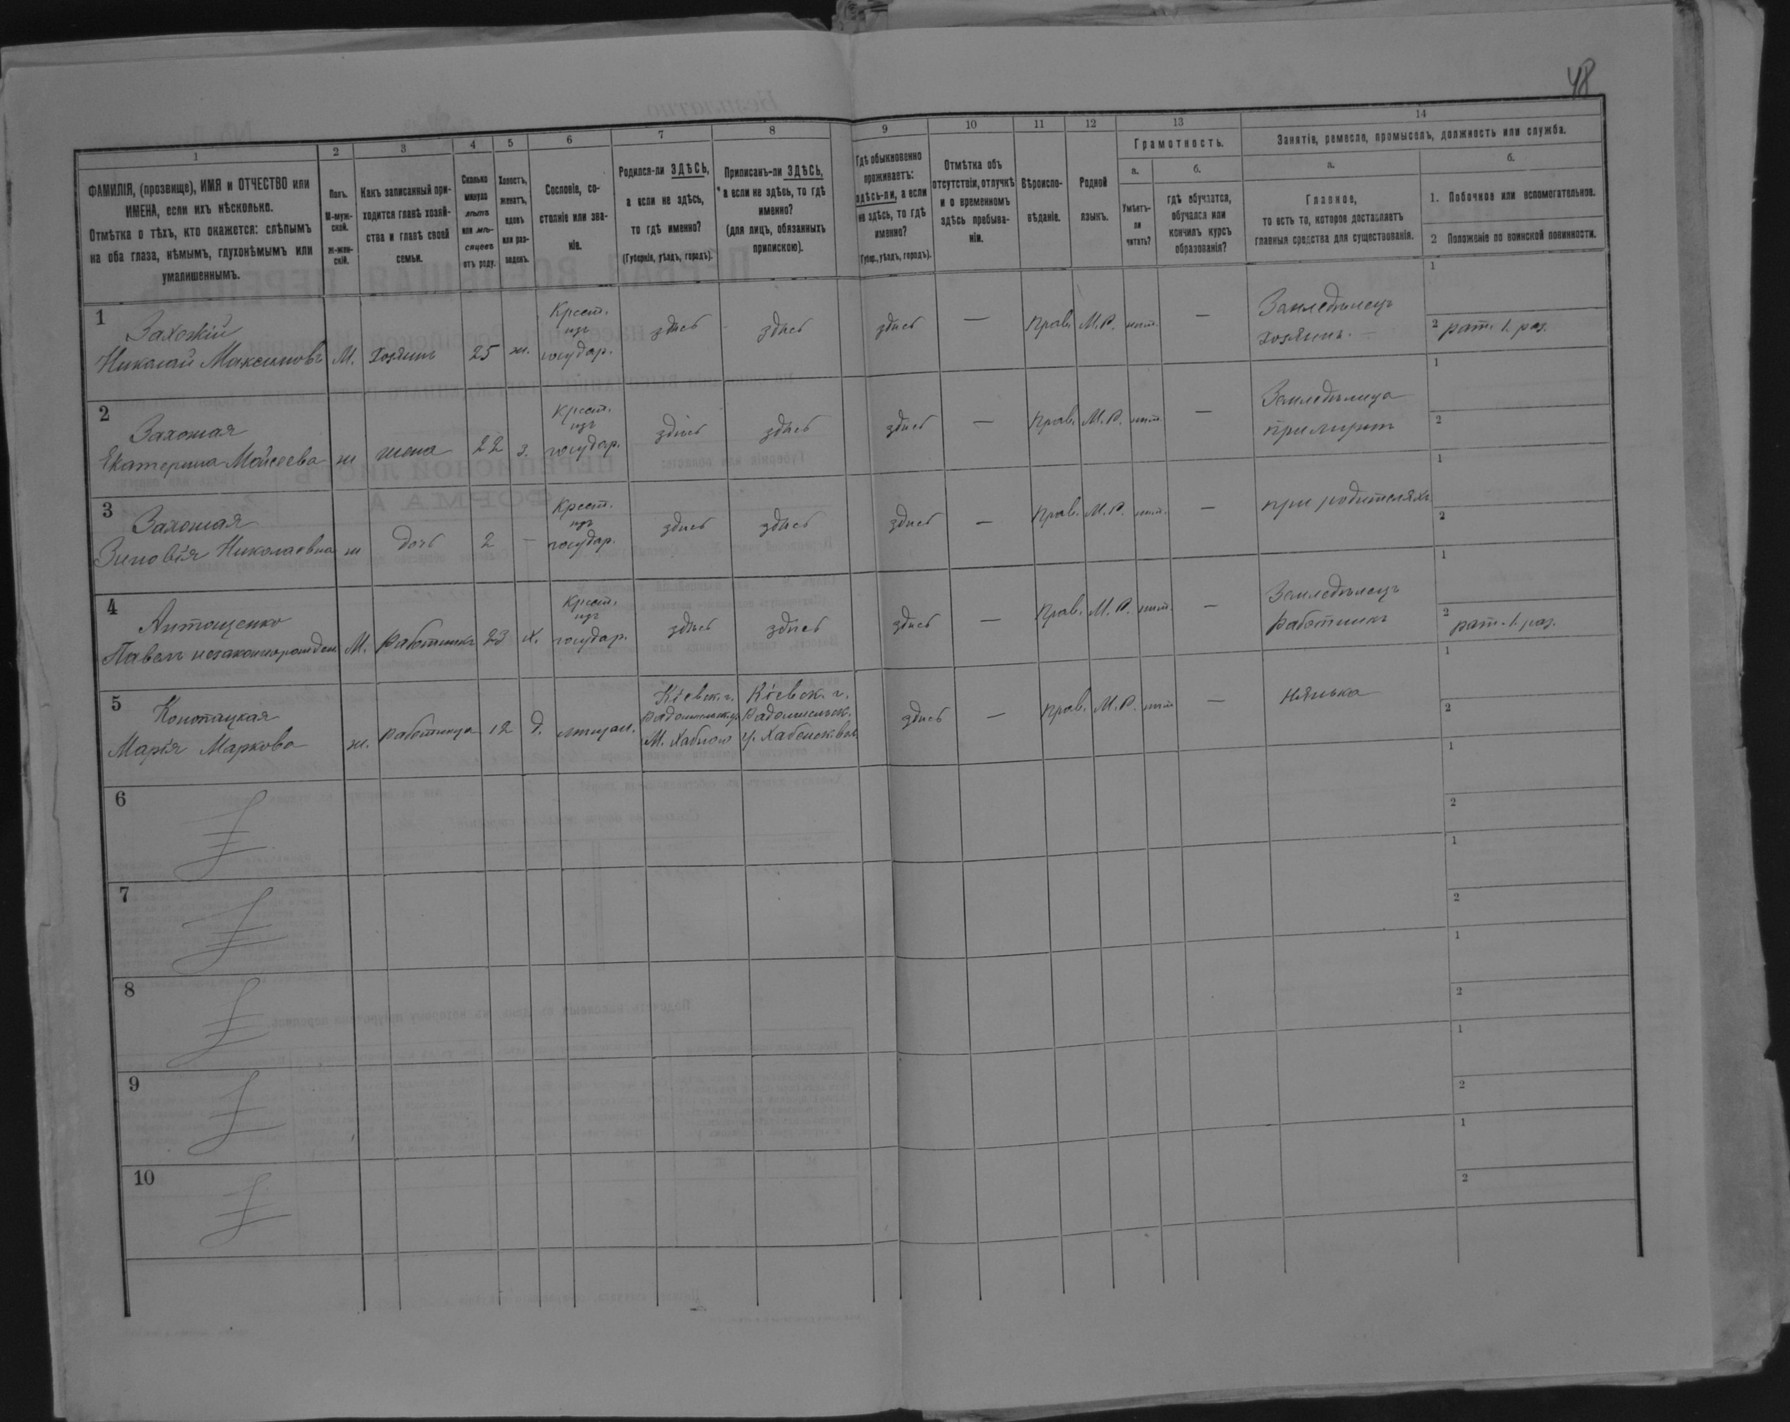 48
1 2 3 4 5 6 7 8 9 10 11 12 13 14
ФАМИЛІЯ, (прозвище), ИМЯ и ОТЧЕСТВО или
ИМЕНА, если ихъ нѣсколько.
Отмѣтка о тѣхъ, кто окажется: слѣпымъ
на оба глаза, нѣмымъ, глухонѣмымъ или
умалишеннымъ.
Полъ.
М-муж-
ской.
Ж-жен-
скій.
Какъ записанный при-
ходится главѣ хозяй-
ства и главѣ своей
семьи.
Сколько
минуло
лѣтъ
или мѣ-
сяцевъ
отъ роду.
Холостъ,
женатъ,
вдовъ
или раз-
веденъ.
Сословіе, со-
стояніе или зва-
ніе.
Родился-ли ЗДѢСЬ,
а если не здѣсь,
то гдѣ именно?
(Губернія, уѣздъ, городъ).
Приписанъ-ли ЗДѢСЬ,
а если не здѣсь, то гдѣ
именно?
(для лицъ, обязанныхъ
припискою).
Гдѣ обыкновенно
проживаетъ:
здѣсь-ли, а если
не здѣсь, то гдѣ
именно?
(Губер., уѣздъ, городъ).
Отмѣтка объ
отсутствіи, отлучкѣ
и о временномъ
здѣсь пребыва-
ніи.
Вѣроиспо-
вѣданіе.
Родной
языкъ.
Грамотность.
а.
Умѣетъ-
ли
читать?
б.
гдѣ обучается,
обучался или
кончилъ курсъ
образованія?
Занятіе, ремесло, промыселъ, должность или служба.
а.
Главное,
то есть то, которое доставляетъ
главныя средства для существованія.
б.
1. Побочное или вспомогательное.
2 Положеніе по воинской повинности.
1
Захожій
Николай Максимовъ М. хозяинъ 25 ж. Крест. изъ государ. здѣсь здѣсь здѣсь — Прав. М.Р. нѣт. — Земледѣлецъ хозяинъ. 1
2 рат. 1. раз.
2
Захожая
Екатерина Мойсеева ж жена 22 з. Крест. изъ государ. здѣсь здѣсь здѣсь — Прав. М.Р. нѣт. — Земледѣлица при мужѣ 1
2
3
Захожая
Зиновія Николаевна ж дочь 2 — Крест. изъ государ. здѣсь здѣсь здѣсь — Прав. М.Р. нѣт. — при родителяхъ 1
2
4
Антощенко
Павелъ незаконорожден М. Работникъ 23 х. Крест. изъ государ. здѣсь здѣсь здѣсь — Прав. М.Р. нѣт. — Земледѣлецъ работникъ 1
2 рат. 1. раз.
5
Конотацкая
Марія Маркова ж. Работница 12 д. мѣщан. Кіевск. г. Радомысльск. у. М. Хабное Кіевск. г. Радомысльск. у. Хабенск. вол здѣсь — Прав. М.Р. нѣт — нянька 1
2
6
1
2
7
1
2
8
1
2
9
1
2
10
1
2